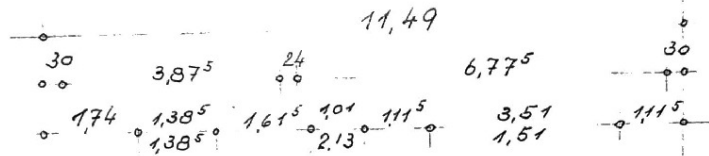 11,49
30 3,87⁵ 24 6,77⁵ 30
1,74 1,38⁵ 1,61⁵ 1,01 1,11⁵ 3,51 1,11⁵
1,38⁵ 2,13 1,51